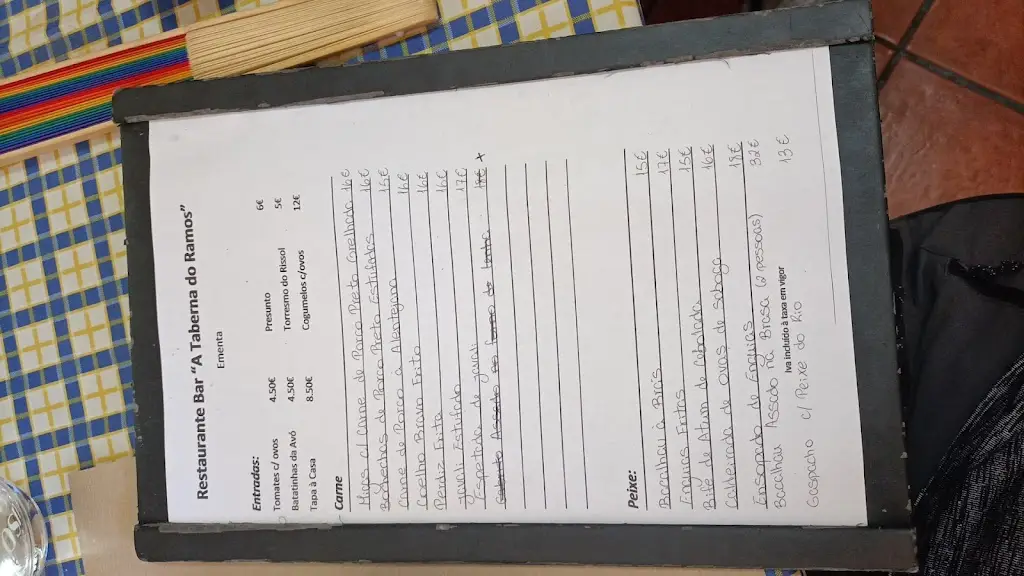 Restaurante Bar "A Taberna do Ramos"
Ementa
Entradas:
Tomates c/ ovos 4.50€ Presunto 6€
Batatinhas da Avó 4.50€ Torresmo do Rissol 5€
Tapa à Casa 8.50€ Cogumelos c/ovos 12€
Carne
Migas c/ Carne de Porco Preto Grelhada 16€
Bochechas de Porco Preto Estufadas 16€
Carne de Porco a Alentejana 15€
Coelho Bravo Frito 16€
Perdiz Frita 16€
Javali Estufado 16€
Espetada de javali 17€
Assado no forno de 18€ x
Peixe:
Bacalhau à Brás 15€
Enguias Fritas 17€
Bife de Atum de Cebolada 15€
Caldeirada de ovas de saboga 16€
Ensopado de Enguias 18€
Bacalhau Assado na Brasa (2 pessoas) 32€
Iva incluido à taxa em vigor
Gaspacho c/ Peixe do Rio 13€